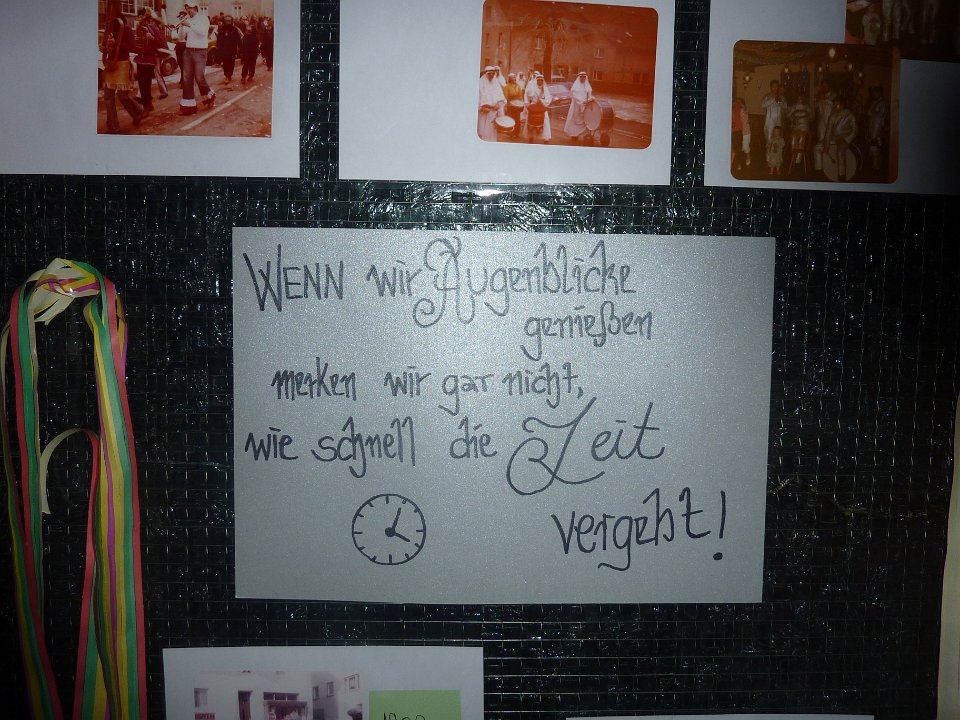 WENN wir Augenblicke
genießen
merken wir gar nicht,
wie schnell die Zeit
vergeht!